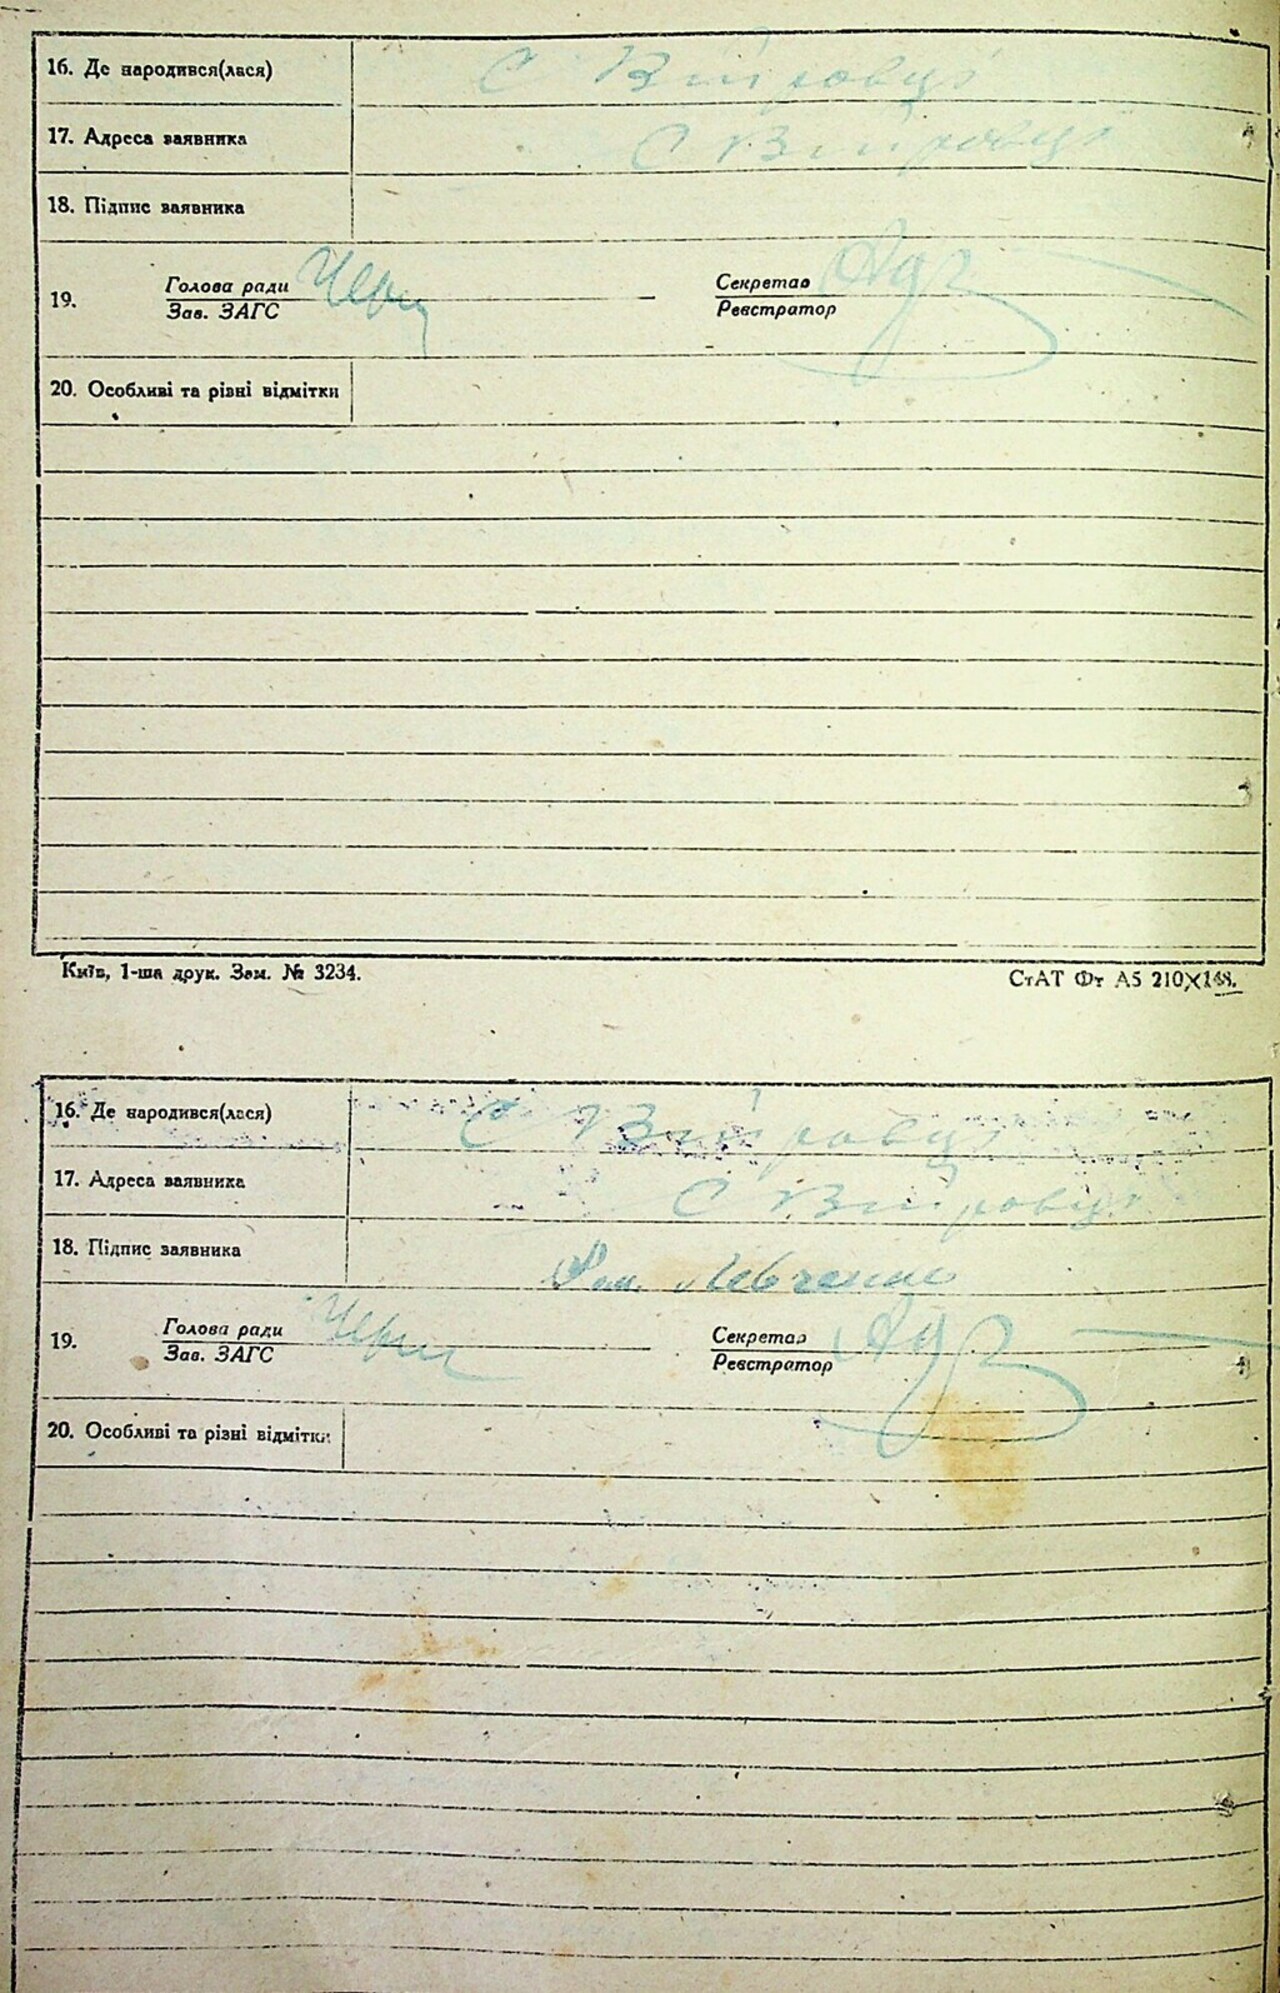 16. Де народився(лася) С Вітровці
17. Адреса заявника С Вітровці
18. Підпис заявника
19. Голова ради Секретар
Зав. ЗАГС Реєстратор
20. Особливі та різні відмітки
Київ, 1-ша друк. Зам. № 3234. СтАТ Фт А5 210×148.
16. Де народився(лася) С Вітровці
17. Адреса заявника С Вітровці
18. Підпис заявника Левченко
19. Голова ради Секретар
Зав. ЗАГС Реєстратор
20. Особливі та різні відмітки